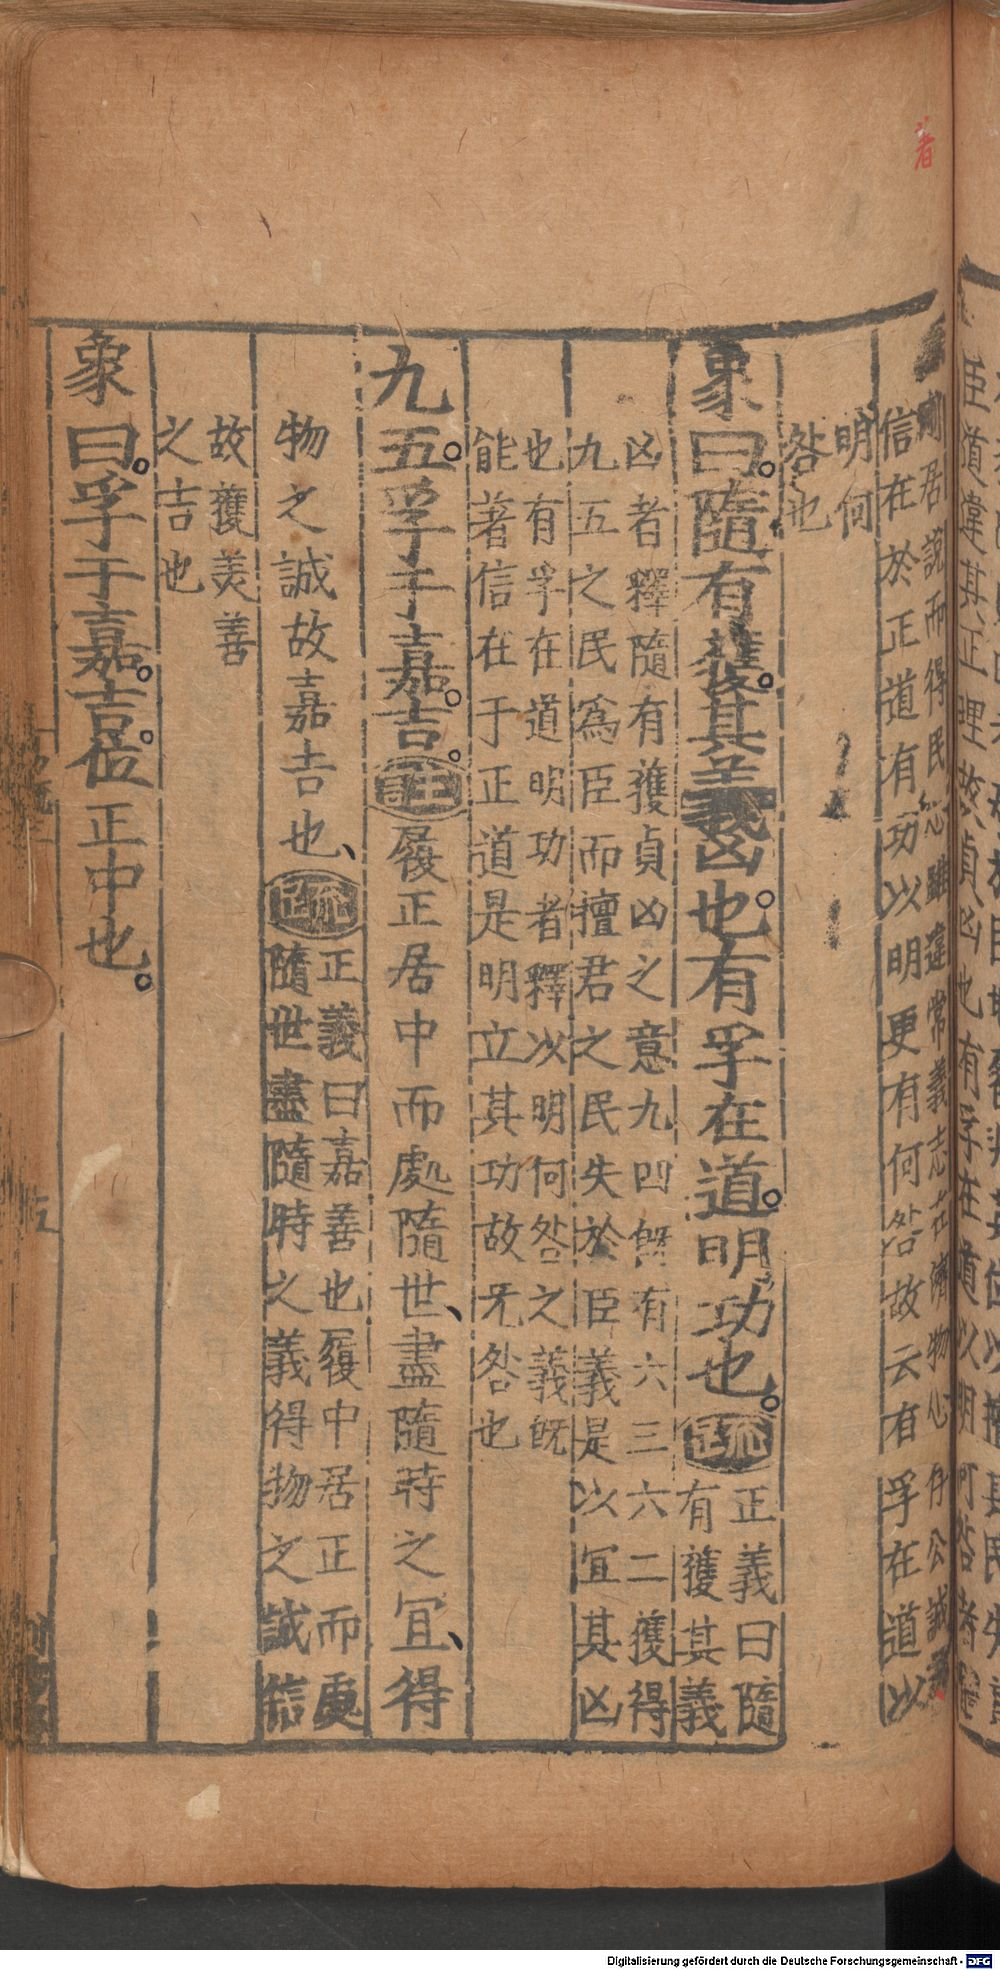 著
剛居說而得民心雖違常義志在濟物心存公誠著
信在於正道有功以明更有何咎故云有孚在道以
明何
咎也
象曰隨有獲其義凶也有孚在道明功也疏正義曰隨
有獲其義
凶者釋隨有獲貞凶之意九四旣有六三六二獲得
九五之民爲臣而擅君之民失於臣義是以冝其凶
也有孚在道明功者釋以明何咎之義旣
能著信在于正道是明立其功故旡咎也
九五孚于嘉吉註履正居中而處隨世盡隨時之冝得
物之誠故嘉吉也疏正義曰嘉善也履中居正而處
隨世盡隨時之義得物之誠信
故獲美善
之吉也
象曰孚于嘉吉位正中也
五
臣道違其正理故貞凶也有孚在道以明何咎者
Digitalisierung gefördert durch die Deutsche Forschungsgemeinschaft - DFG